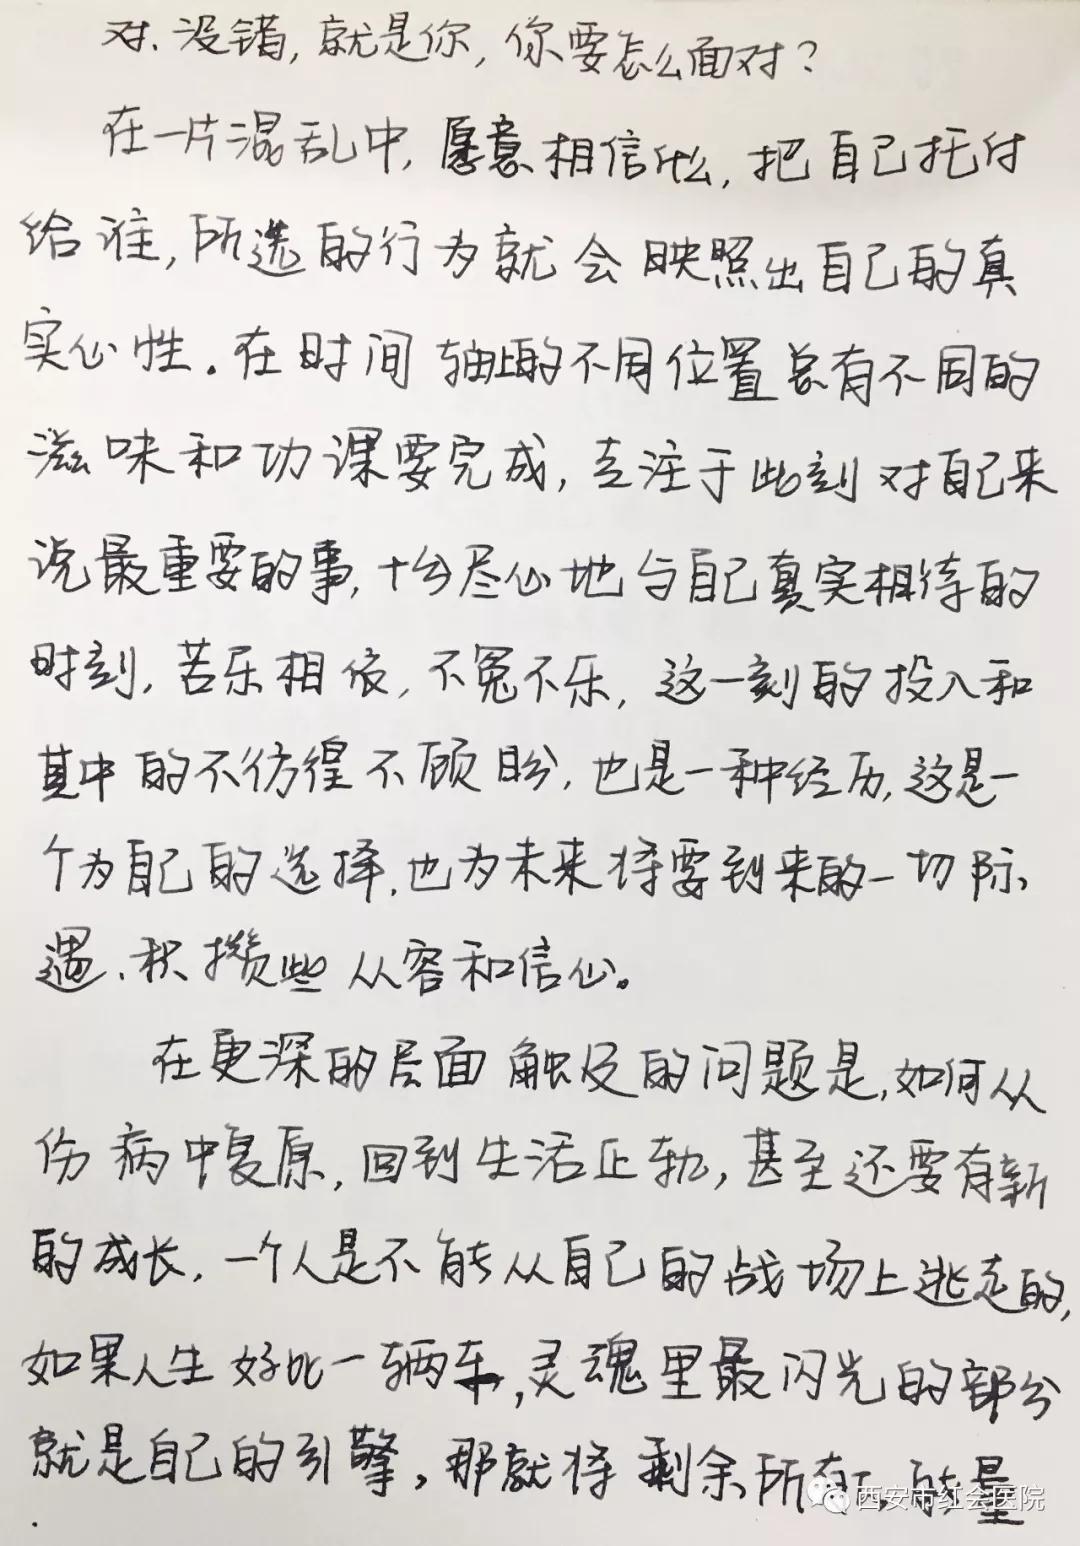 对、没错,就是你,你要怎么面对?
在一片混乱中,愿意相信什么,把自己托付
给谁,所选的行为就会映照出自己的真
实心性。在时间轴上的不同位置总有不同的
滋味和功课要完成,专注于此刻对自己来
说最重要的事,十分尽心地与自己真实相待的
时刻,苦乐相依,不冤不乐,这一刻的投入和
其中的不彷徨不顾盼,也是一种经历,这是一
个为自己的选择,也为未来将要到来的一切际
遇、积攒些从容和信心。
在更深的层面触及的问题是,如何从
伤病中复原,回到生活正轨,甚至还要有新
的成长,一个人是不能从自己的战场上逃走的,
如果人生好比一辆车,灵魂里最闪光的部分
就是自己的引擎,那就将剩余所有的能量
西安市红会医院